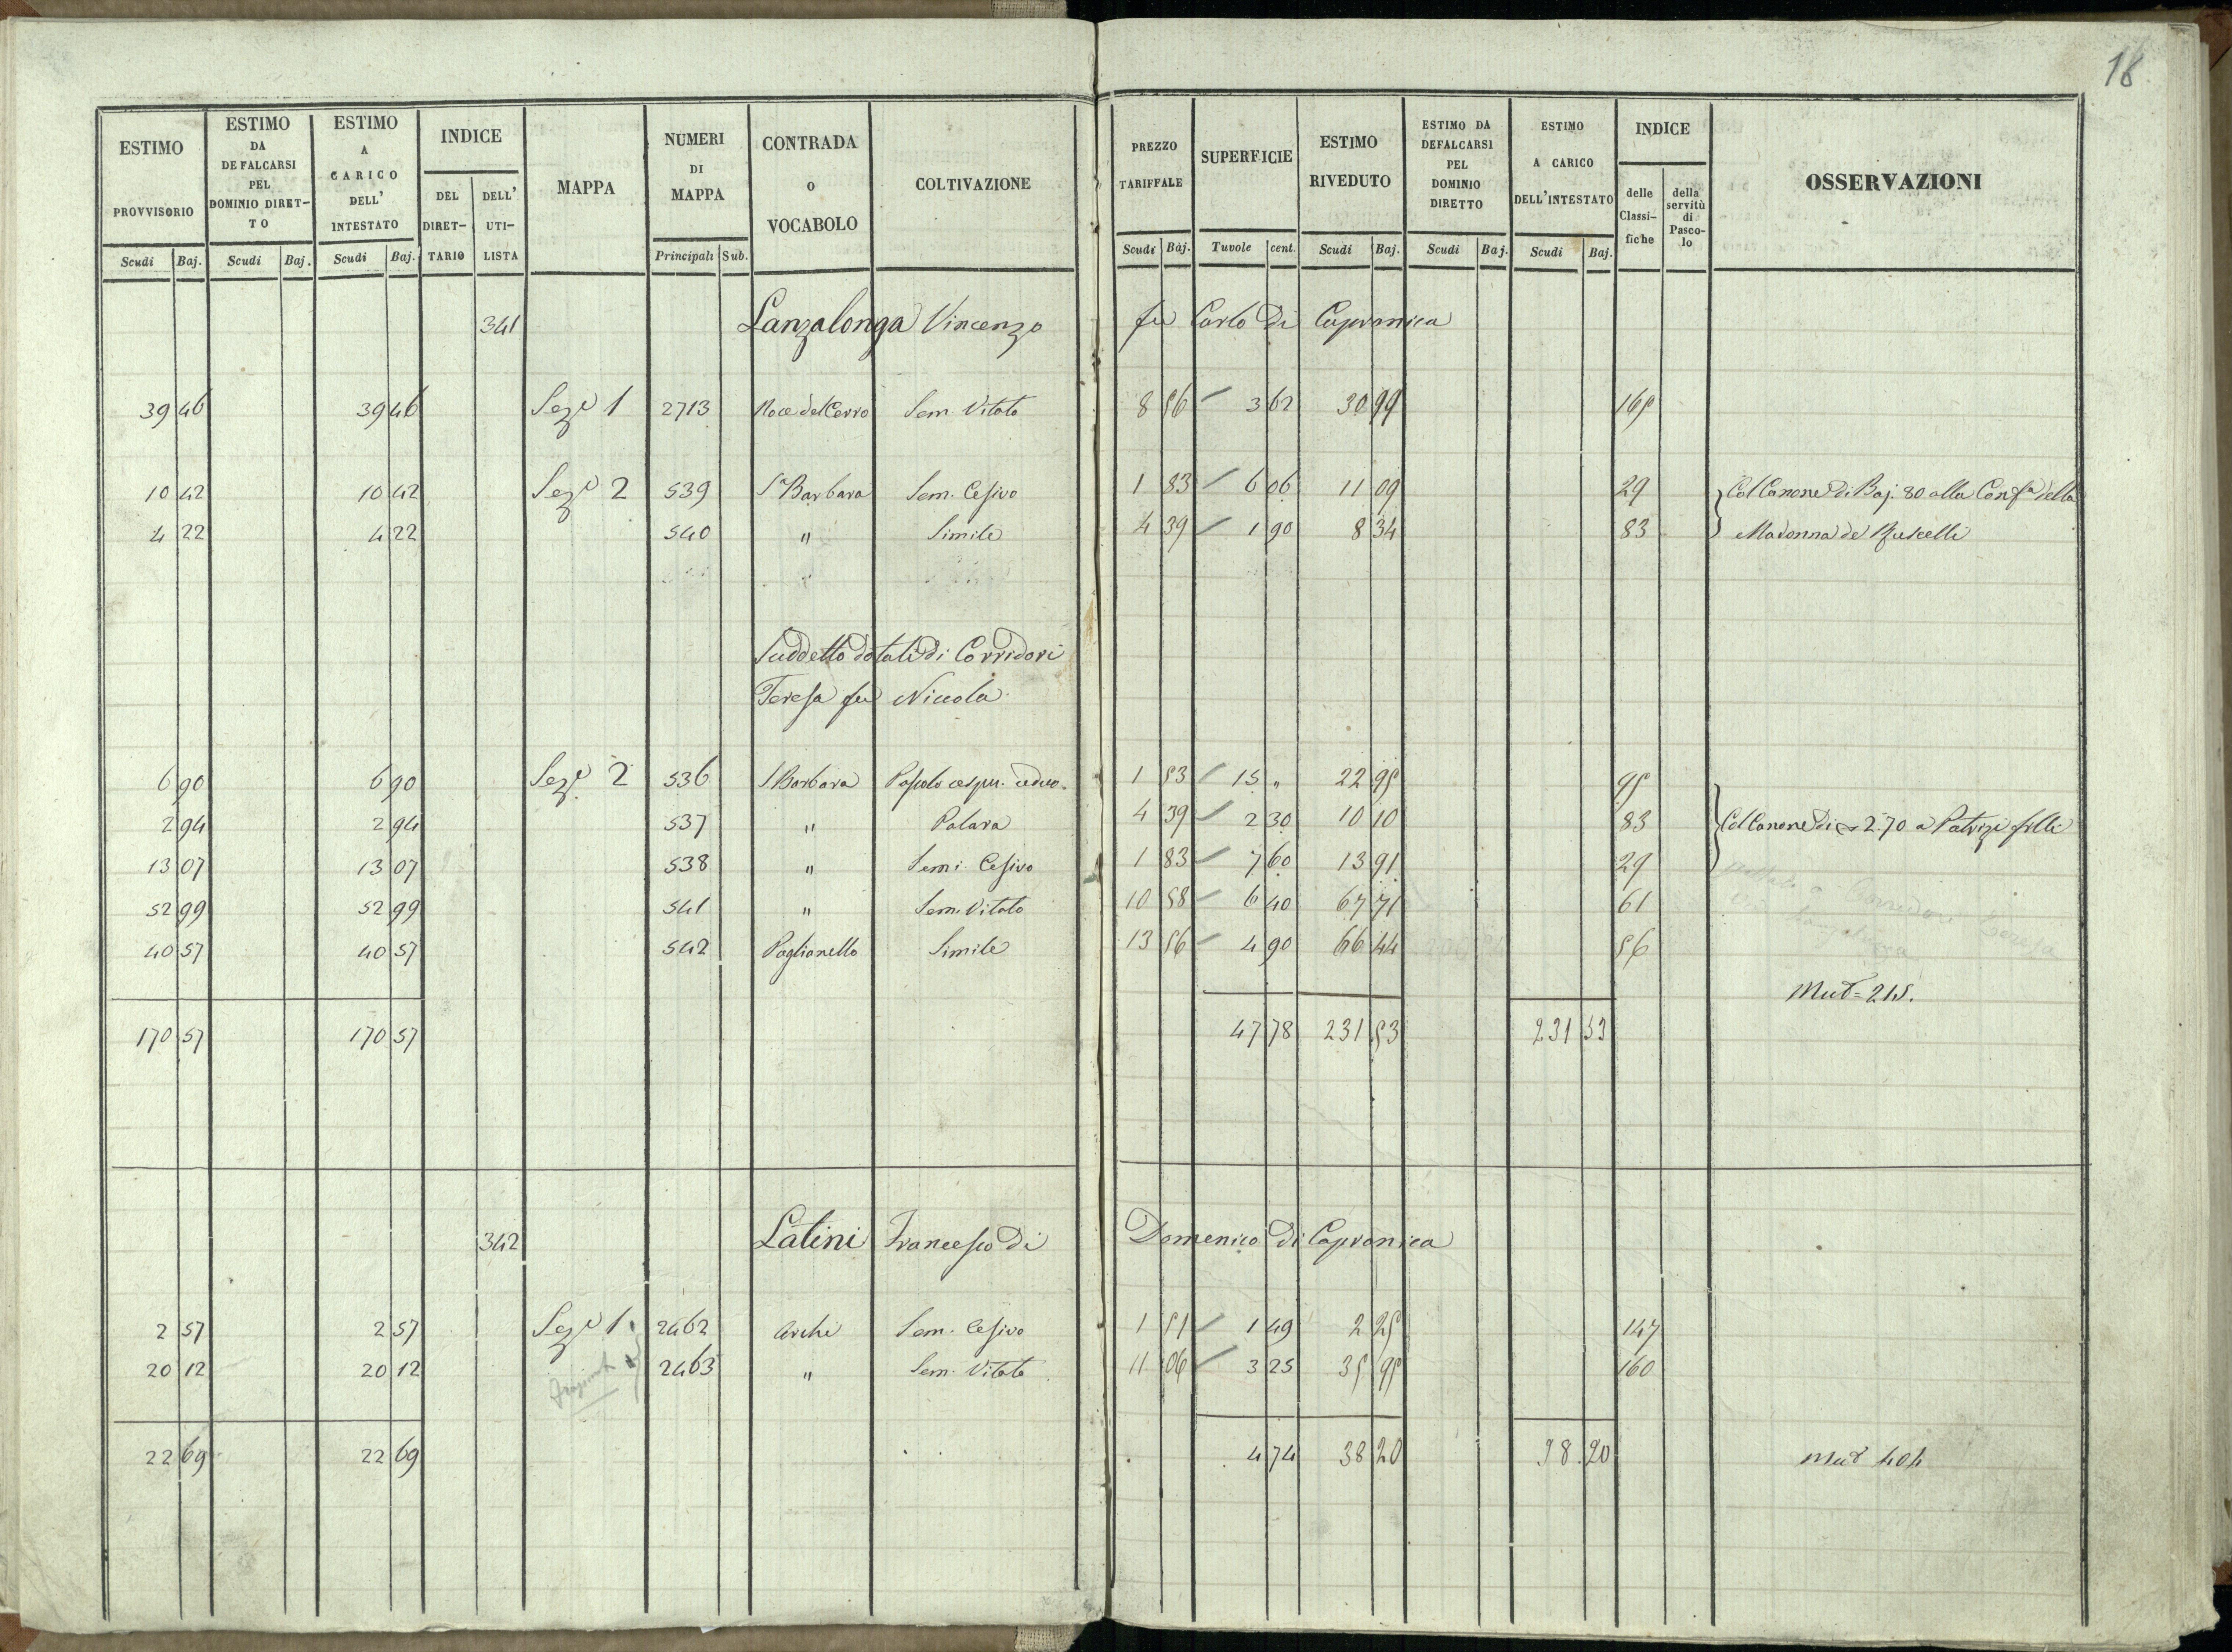 18
ESTIMO PROVVISORIO | ESTIMO DA DEFALCARSI PEL DOMINIO DIRET-TO | ESTIMO A CARICO DELL' INTESTATO | INDICE | MAPPA | NUMERI DI MAPPA | CONTRADA O VOCABOLO | COLTIVAZIONE | PREZZO TARIFFALE | SUPERFICIE | ESTIMO RIVEDUTO | ESTIMO DA DEFALCARSI PEL DOMINIO DIRETTO | ESTIMO A CARICO DELL'INTESTATO | INDICE | OSSERVAZIONI
DEL DIRET-TARIO | DELL' UTI-LISTA | delle Classi-fiche | della servitù di Pasco-lo
Scudi | Baj. | Scudi | Baj. | Scudi | Baj. | Principali | Sub. | Scudi | Baj. | Tavole | cent. | Scudi | Baj. | Scudi | Baj. | Scudi | Baj.
341 Lanzalonga Vincenzo fu Carlo di Capranica
39 46 | 39 46 | Sez.e 1 | 2713 | Noce del Cerro | Sem. Vitato | 8 56 | 3 62 | 30 99 | 165
10 42 | 10 42 | Sez.e 2 | 539 | S.a Barbara | Sem. Cesivo | 1 83 | 6 06 | 11 09 | 29 | Col Canone di Baj. 80 alla Conf.a della
4 22 | 4 22 | 540 | " | Simile | 4 39 | 1 90 | 8 34 | 83 | Madonna de
Suddetto dotali di Corridori
Teresa fu Niccola
6 90 | 6 90 | Sez.e 2 | 536 | S. Barbara | Pascolo cespu. ceduo | 1 53 | 15 " | 22 95 | 95
2 94 | 2 94 | 537 | " | Palara | 4 39 | 2 30 | 10 10 | 83 | Col Canone di 2.70 a Patrizi f.lli
13 07 | 13 07 | 538 | " | Semi. Cesivo | 1 83 | 7 60 | 13 91 | 29
52 99 | 52 99 | 541 | " | Sem. Vitato | 10 58 | 6 40 | 67 71 | 61 | Corridori Teresa
40 57 | 40 57 | 542 | Paglianello | Simile | 13 56 | 4 90 | 66 44 | 56
Mut = 215.
170 57 | 170 57 | 47 78 | 231 53 | 231 53
342 Latini Francesco di Domenico di Capranica
2 57 | 2 57 | Sez.e 1. | 2462 | Archi | Sem. Cesivo | 1 51 | 1 49 | 2 25 | 147
20 12 | 20 12 | 2463 | " | Sem. Vitato | 11 06 | 3 25 | 35 95 | 160
22 69 | 22 69 | 4 74 | 38 20 | 38.20 | Mut 404